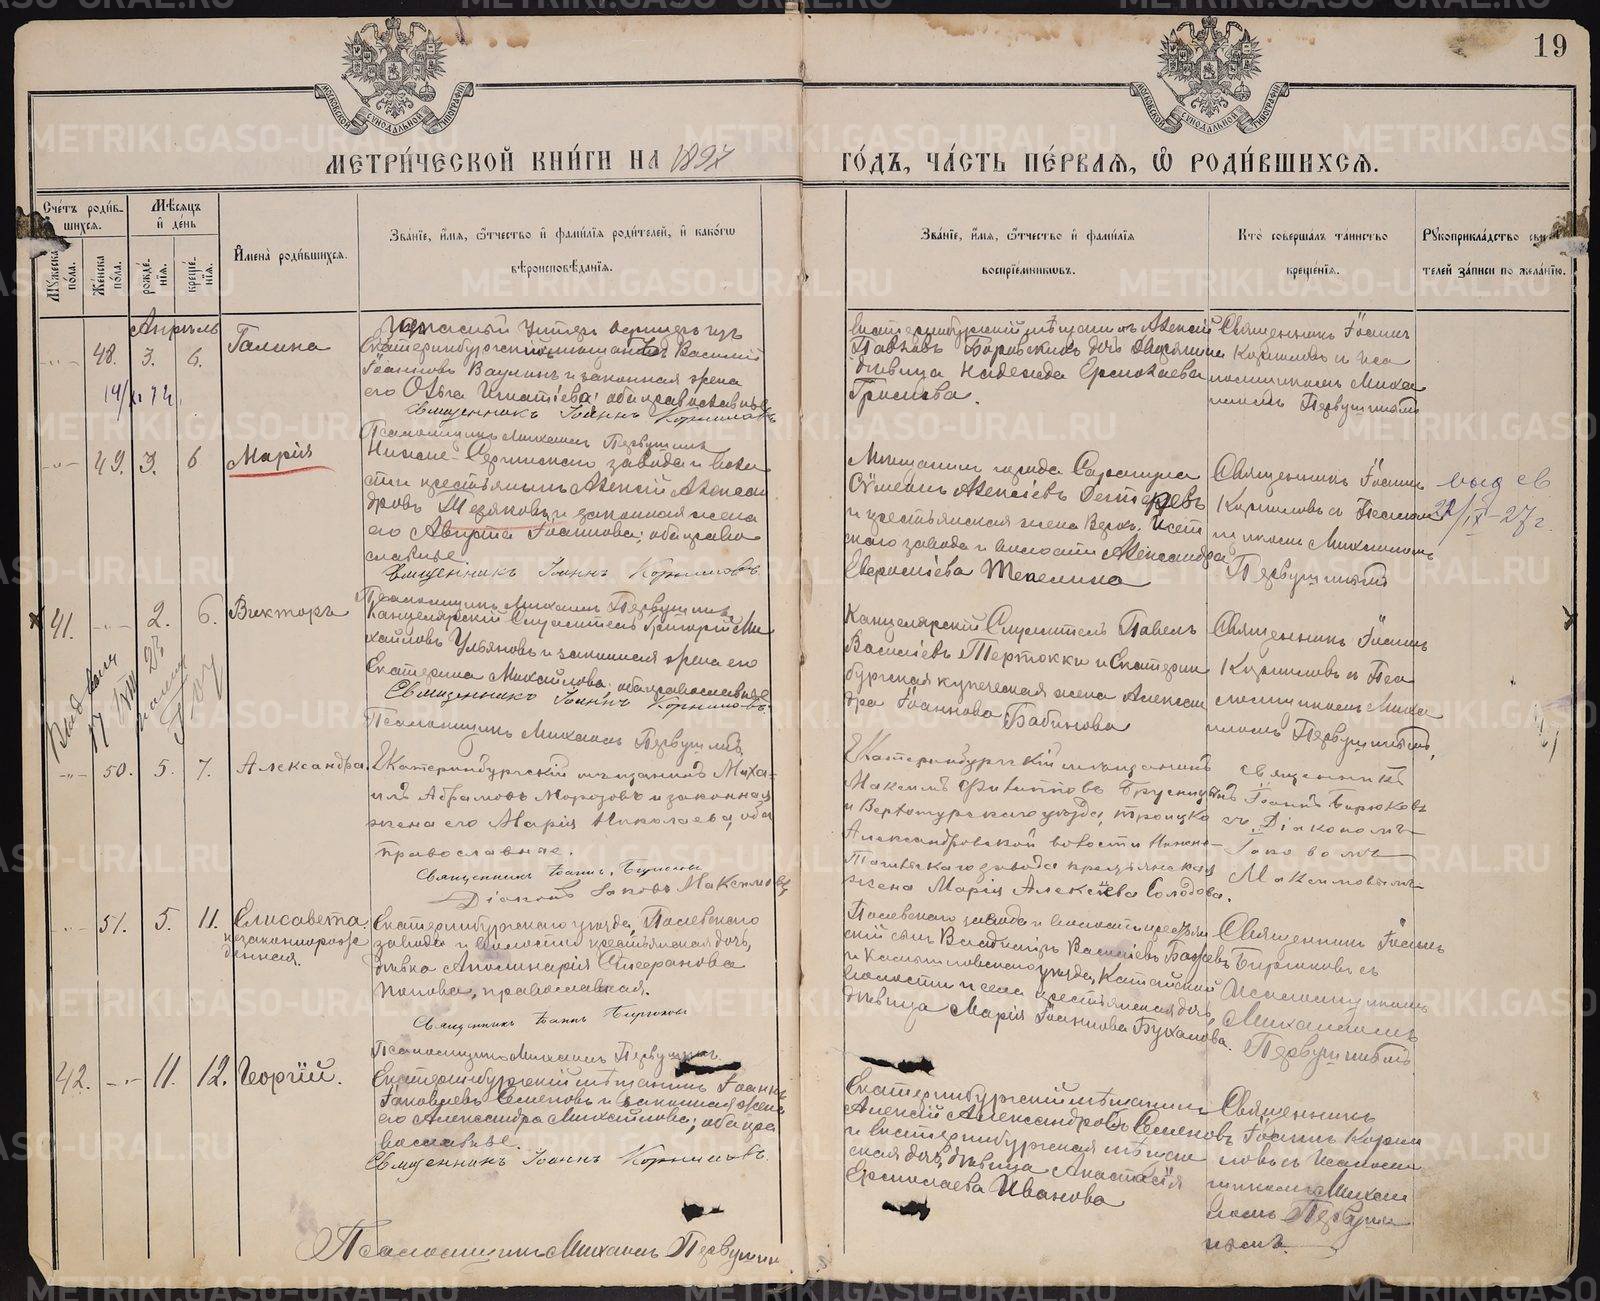 19
МОСКОВСКОЙ СѴНОДАЛЬНОЙ ТИПОГРАФІИ
МОСКОВСКОЙ СѴНОДАЛЬНОЙ ТИПОГРАФІИ
МЕТРИ́ЧЕСКОЙ КНИ́ГИ НА 1897
ГО́ДЪ, ЧА́СТЬ ПЕ́РВАЯ, Ѽ РОДИ́ВШИХСЯ.
Сче́тъ роди́в-
шихся.
Мꙋжеска по́ла.
Же́нска по́ла.
Мѣ́сяцъ
и҆ де́нь
рожде́нїя.
креще́нїя.
И҆мена̀ роди́вшихся.
Зва́нїе, и҆́мя, ѻ҆́тчество и҆ фами́лїя роди́телей, и҆ како́гѡ
вѣроисповѣ́данїя.
Зва́нїе, и҆́мя, ѻ҆́тчество и҆ фами́лїя
воспрїе́мникѡвъ.
Кто̀ соверша́лъ та́инство
креще́нїя.
Рꙋкоприкла́дство
те́лей за́писи по жела́нїю.
Апрѣль
48. 3. 6. Галина
Екатеринбургскій мѣщанинъ Василій
Іоанновъ Ваулинъ и законная жена
его Ольга Игнатіева; оба православные
Священникъ Іоаннъ Корниловъ
Псаломщикъ Михаилъ Первушинъ
Екатеринбургскій мѣщанинъ Алексій
Павловъ Боровскихъ
дѣвица Надежда Ермолаева
Священникъ Іоаннъ
Корниловъ и пса
ломщикомъ Миха
иломъ Первушинымъ
49. 3. 6 Марія
Нижне-Сергинскаго завода и воло
сти крестьянинъ Алексій Алексан
дровъ Мезяковъ и законная жена
его Августа Іоаннова; оба право
славные
Священникъ Іоаннъ Корниловъ.
Псаломщикъ Михаилъ Первушинъ
Мѣщанинъ города Сарапула
Сѷмеонъ Алексіевъ Дегтеревъ
и крестьянская жена Верхъ-Исет
скаго завода и волости Александра
Текелина
Священникъ Іоаннъ
Корниловъ съ Псалом
щикомъ Михаиломъ
Первушинымъ
выд св
22/IX-27 г.
41. 2. 6. Викторъ
Канцелярскій Служитель Григорій Ми
хайловъ Ульяновъ и законная жена его
Екатерина Михайлова; оба православные
Священникъ Іоаннъ Корниловъ.
Псаломщикъ Михаилъ Первушинъ
Канцелярскій Служитель Павелъ
Василіевъ и Екатерин
бургская купеческая жена Алексан
дра Іоаннова Бабинова
Священникъ Іоаннъ
Корниловъ и Пса
ломщикомъ Миха
иломъ Первушинымъ
50. 5. 7. Александра.
Екатеринбургскій мѣщанинъ Миха-
илъ Абрамовъ Морозовъ и законная
жена его Марія Николаева, оба
православные.
Священникъ Іоаннъ Бирюковъ
Діаконъ Іаковъ Максимовъ
Екатеринбургскій мѣщанинъ
Максимъ Филипповъ Брусницынъ
и Верхотурскаго уѣзда, Троицко
Александровской волости Нижне-
Тагильскаго завода крестьянская
жена Марія Алексіева Солодова.
священникъ
Іоаннъ Бирюковъ
съ Діакономъ
Іаковомъ
Максимовымъ
51. 5. 11. Елисавета.
незаконнорож
денная.
Екатеринбургскаго уѣзда, Полевскаго
завода и волости крестьянская дочь,
дѣвка Аполинарія Стефанова
Попова, православная.
Священникъ Іоаннъ Бирюковъ
Псаломщикъ Михаилъ Первушинъ.
Полевскаго завода и волости крестьян
скій сынъ Владиміръ Василіевъ Бажевъ
и Камышловскаго уѣзда, Катайской
волости и села крестьянская дочь,
дѣвица Марія Іоаннова Буханова.
Священникъ Іоаннъ
Бирюковъ съ
Псаломщикомъ
Михаиломъ
Первушинымъ
42. 11. 12. Георгій.
Екатеринбургскій мѣщанинъ Іоаннъ
Іаковлевъ Семеновъ и законная жена
его Александра Михайлова; оба пра
вославные.
Священникъ Іоаннъ Корниловъ.
Псаломщикъ Михаилъ Первушинъ
Екатеринбургскій мѣщанинъ
Алексій Александровъ Семеновъ
и Екатеринбургская мѣщан
ская дочь, дѣвица Анастасія
Ермолаева Иванова
Священникъ
Іоаннъ Корни
ловъ съ псалом
щикомъ Михаи
ломъ Первуши
нымъ.
METRIKI.GASO-URAL.RU